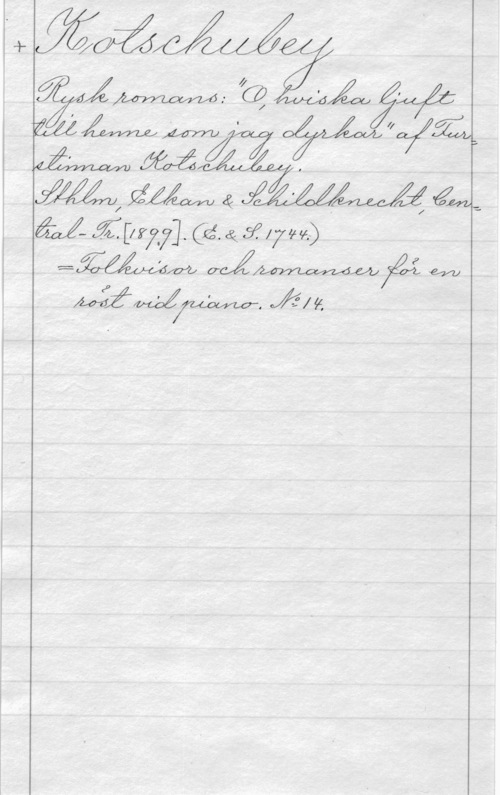 + Kotschubey
Rysk romans: "O, hviska ljuft
till henne som jag dyrkar" af Fur=
stinnan Kotschubey.
Sthlm, Elkan & Schildknecht, Cen=
tral-Tr. [1899]. (E. & S. 1744.)
=Folkvisor och romanser för en
röst vid piano. No 14.